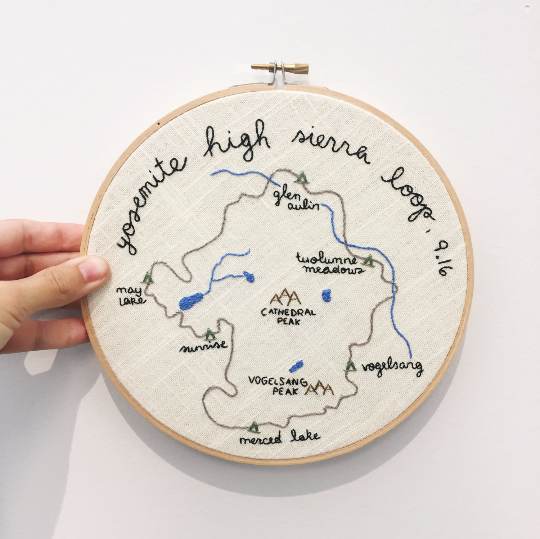 yosemite high sierra loop, 9.16
glen
aulin
tuolumne
meadows
may
lake
CATHEDRAL
PEAK
sunrise
vogelsang
VOGELSANG
PEAK
merced lake